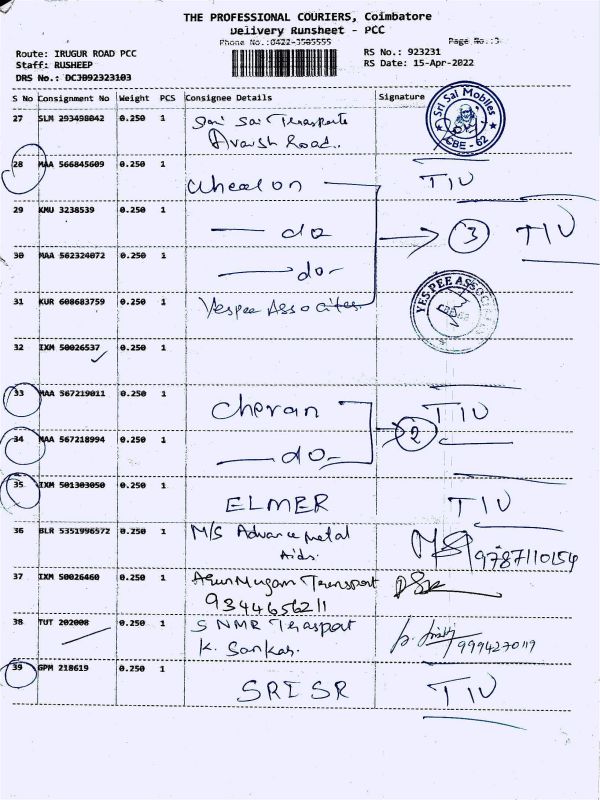 THE PROFESSIONAL COURIERS, Coimbatore
Delivery Runsheet - PCC
Phone No.:0422-3505555
Page No.:3
Route: IRUGUR ROAD PCC
RS No.: 923231
Staff: RUSHEEP
RS Date: 15-Apr-2022
DRS No.: DCJ092323103
S No Consignment No Weight PCS Consignee Details Signature
27 SLM 293498042 0.250 1 Sri Sai Transports
Road..
Sri Sai Mobiles
CBE - 62
28 MAA 566845609 0.250 1 Wheel on TIU
29 KMU 3238539 0.250 1 do 3 TIU
30 MAA 562324072 0.250 1 do
31 KUR 608683759 0.250 1 Yespee Assocites
YESPEE ASSOCIATES
32 IXM 50026537 0.250 1
33 MAA 567219011 0.250 1 Cheran TIU
34 MAA 567218994 0.250 1 do 2
35 IXM 501303050 0.250 1 ELMER TIU
36 BLR 5351996572 0.250 1 M/S Advance Metal
Aids. 9787110154
37 IXM 50026460 0.250 1 ArunMugam Transport
9344656211
38 TUT 202008 0.250 1 S NMR Trasport
K. Sankar. 9994270119
39 GPM 218619 0.250 1 SRI SR TIU